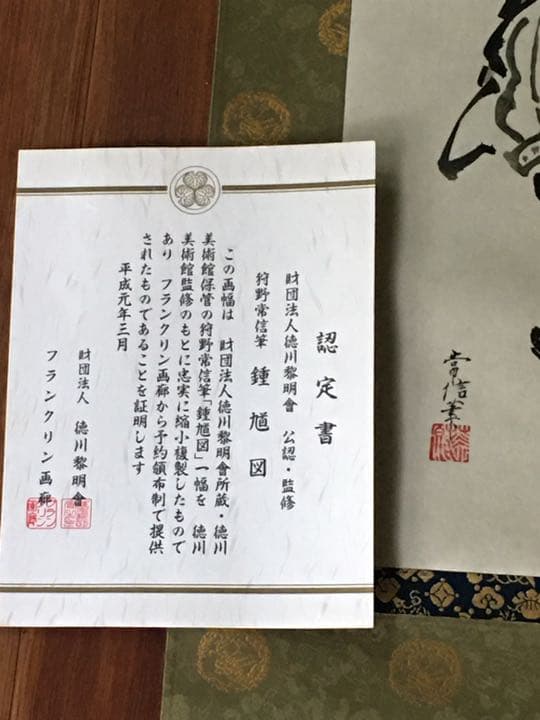 認定書
財団法人徳川黎明會 公認・監修
狩野常信筆 鍾馗図
この画幅は 財団法人徳川黎明會所蔵・徳川
美術館保管の狩野常信筆「鍾馗図」一幅を 徳川
美術館監修のもとに忠実に縮小複製したもので
あり フランクリン画廊から予約領布制で提供
されたものであることを証明します
平成元年三月
財団法人 徳川黎明會
フランクリン画廊
常信筆